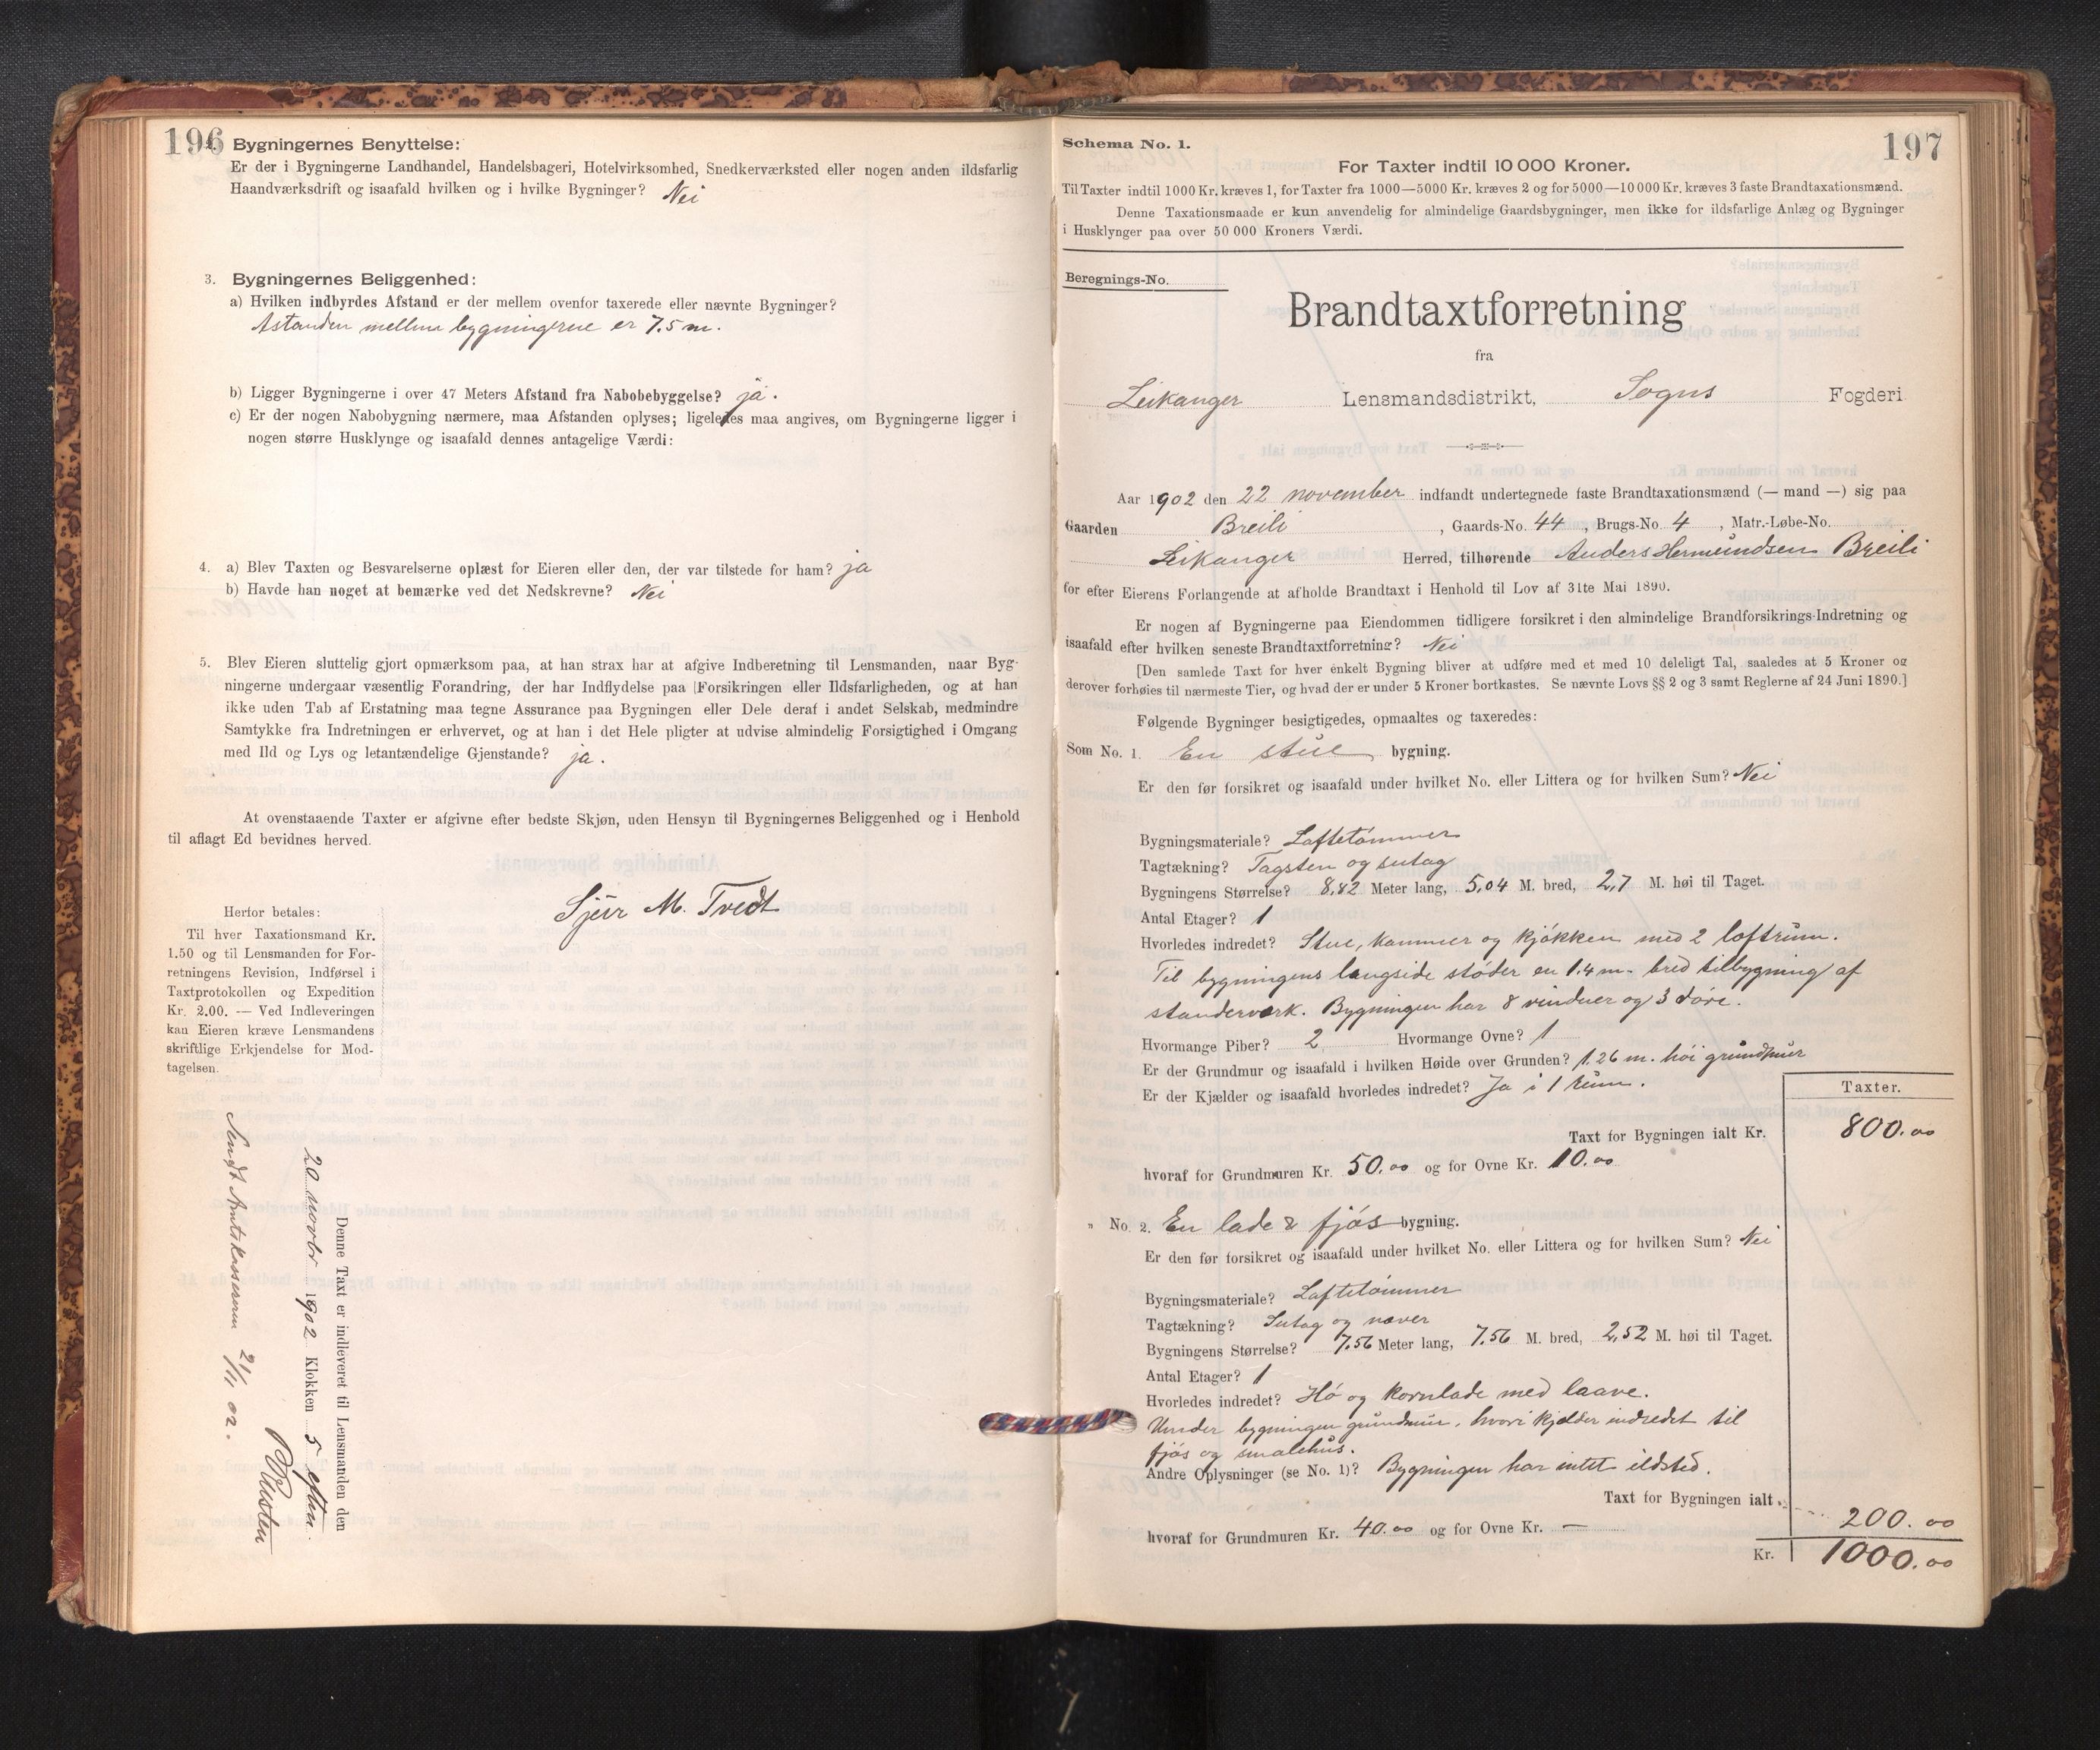 196
2. Bygningernes Benyttelse:
Er der i Bygningerne Landhandel, Handelsbageri, Hotelvirksomhed, Snedkerværksted eller nogen anden ildsfarlig
Haandværksdrift og isaafald hvilken og i hvilke Bygninger? Nei
3. Bygningernes Beliggenhed:
a) Hvilken indbyrdes Afstand er der mellem ovenfor taxerede eller nævnte Bygninger?
Astanden mellem bygningerne er 7.5 m.
b) Ligger Bygningerne i over 47 Meters Afstand fra Nabobebyggelse? ja.
c) Er der nogen Nabobygning nærmere, maa Afstanden oplyses; ligeledes maa angives, om Bygningerne ligger i
nogen større Husklynge og isaafald dennes antagelige Værdi:
4. a) Blev Taxten og Besvarelserne oplæst for Eieren eller den, der var tilstede for ham? ja
b) Havde han noget at bemærke ved det Nedskrevne? Nei
5. Blev Eieren sluttelig gjort opmærksom paa, at han strax har at afgive Indberetning til Lensmanden, naar Byg-
ningerne undergaar væsentlig Forandring, der har Indflydelse paa Forsikringen eller Ildsfarligheden, og at han
ikke uden Tab af Erstatning maa tegne Assurance paa Bygningen eller Dele deraf i andet Selskab, medmindre
Samtykke fra Indretningen er erhvervet, og at han i det Hele pligter at udvise almindelig Forsigtighed i Omgang
med Ild og Lys og letantændelige Gjenstande? ja.
At ovenstaaende Taxter er afgivne efter bedste Skjøn, uden Hensyn til Bygningernes Beliggenhed og i Henhold
til aflagt Ed bevidnes herved.
Sjur M. Tvedt
Herfor betales:
Til hver Taxationsmand Kr.
1.50 og til Lensmanden for For-
retningens Revision, Indførsel i
Taxtprotokollen og Expedition
Kr. 2.00. — Ved Indleveringen
kan Eieren kræve Lensmandens
skriftlige Erkjendelse for Mod-
tagelsen.
Denne Taxt er indleveret til Lensmanden den
20 novbr 1902 Klokken 5 eftm.
Sendt Amtskassereren 21/11 02.
197
Schema No. 1.
For Taxter indtil 10 000 Kroner.
Til Taxter indtil 1000 Kr. kræves 1, for Taxter fra 1000—5000 Kr. kræves 2 og for 5000—10 000 Kr. kræves 3 faste Brandtaxationsmænd.
Denne Taxationsmaade er kun anvendelig for almindelige Gaardsbygninger, men ikke for ildsfarlige Anlæg og Bygninger
i Husklynger paa over 50 000 Kroners Værdi.
Beregnings-No.
Brandtaxtforretning
fra
Leikanger Lensmandsdistrikt, Sogns Fogderi
Aar 1902 den 22 november indfandt undertegnede faste Brandtaxationsmænd (— mand —) sig paa
Gaarden Breili, Gaards-No. 44, Brugs-No. 4, Matr.-Løbe-No.
Leikanger Herred, tilhørende Anders Hermundsen Breili
for efter Eierens Forlangende at afholde Brandtaxt i Henhold til Lov af 31te Mai 1890.
Er nogen af Bygningerne paa Eiendommen tidligere forsikret i den almindelige Brandforsikrings-Indretning og
isaafald efter hvilken seneste Brandtaxtforretning? Nei
[Den samlede Taxt for hver enkelt Bygning bliver at udføre med et med 10 deleligt Tal, saaledes at 5 Kroner og
derover forhøies til nærmeste Tier, og hvad der er under 5 Kroner bortkastes. Se nævnte Lovs §§ 2 og 3 samt Reglerne af 24 Juni 1890.]
Følgende Bygninger besigtigedes, opmaaltes og taxeredes:
Som No. 1. En stue bygning.
Er den før forsikret og isaafald under hvilket No. eller Littera og for hvilken Sum? Nei
Bygningsmateriale? Laftetømmer
Tagtækning? Tagsten og sutag
Bygningens Størrelse? 8,82 Meter lang, 5,04 M. bred, 2,7 M. høi til Taget.
Antal Etager? 1
Hvorledes indredet? Stue, kammer og kjøkken med 2 loftrum.
Til bygningens langside støder en 1.4 m. bred tilbygning af
standerverk. Bygningen har 8 vinduer og 3 døre.
Hvormange Piber? 2 Hvormange Ovne? 1
Er der Grundmur og isaafald i hvilken Høide over Grunden? 1.26 m. høi grundmur
Er der Kjælder og isaafald hvorledes indredet? Ja i 1 rum.
Taxter.
Taxt for Bygningen ialt Kr. 800.00
hvoraf for Grundmuren Kr. 50.00 og for Ovne Kr. 10.00
" No. 2. En lade & fjøs bygning.
Er den før forsikret og isaafald under hvilket No. eller Littera og for hvilken Sum? Nei
Bygningsmateriale? Laftetømmer
Tagtækning? Sutag og næver
Bygningens Størrelse? 7,56 Meter lang, 7,56 M. bred, 2,52 M. høi til Taget.
Antal Etager? 1
Hvorledes indredet? Hø og kornlade med laave.
Under bygningen grundmur, hvori kjelder indredet til
fjøs og smalehus.
Andre Oplysninger (se No. 1)? Bygningen har intet ildsted.
Taxt for Bygningen ialt 200.00
hvoraf for Grundmuren Kr. 40.00 og for Ovne Kr. —
Kr. 1000.00